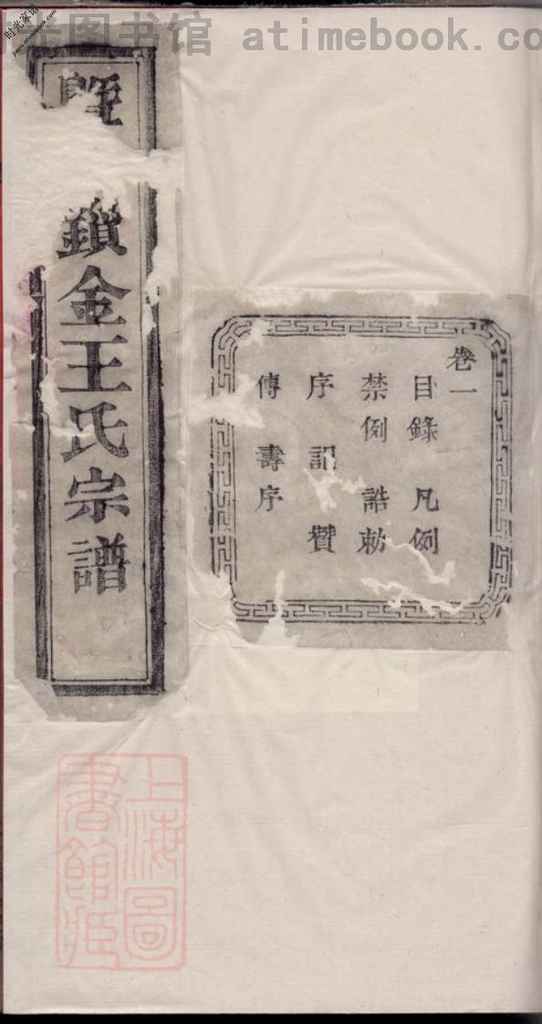 时光图书馆 atimebook.co
卷一
目錄 凡例
禁例 誥勅
序 記 贊
傳 壽序
暨
鎖金王氏宗譜
上海圖
書館藏